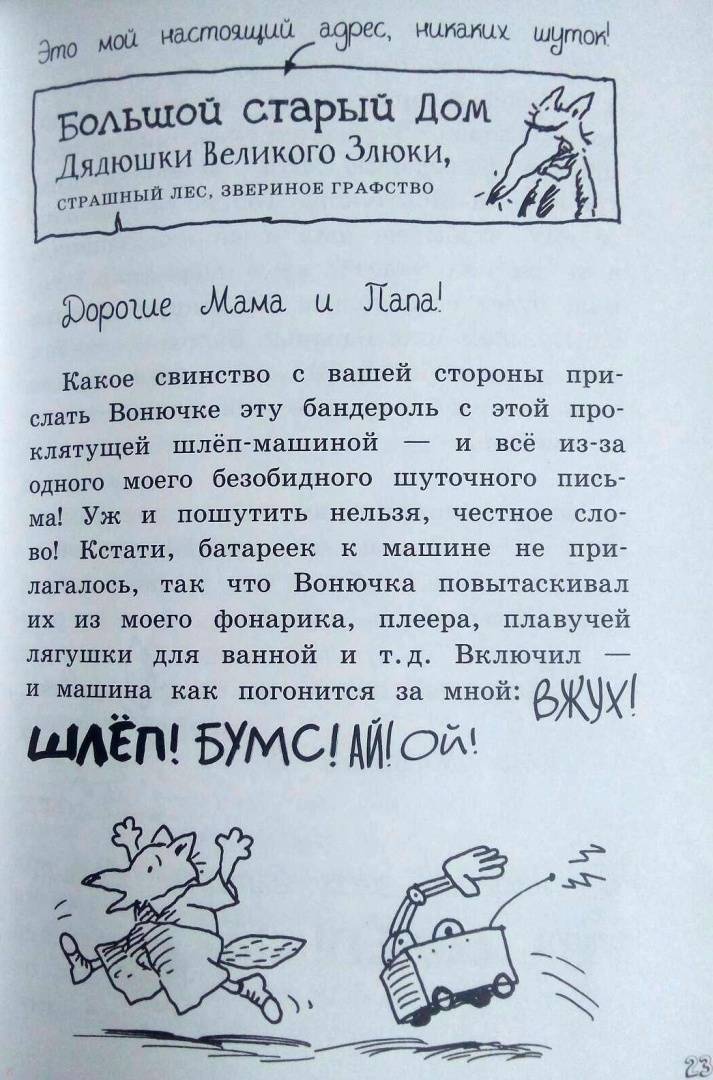 Это мой настоящий адрес, никаких шуток!
Большой старый Дом
Дядюшки Великого Злюки,
страшный лес, звериное графство
Дорогие Мама и Папа!
Какое свинство с вашей стороны при-
слать Вонючке эту бандероль с этой про-
клятущей шлёп-машиной — и всё из-за
одного моего безобидного шуточного пись-
ма! Уж и пошутить нельзя, честное сло-
во! Кстати, батареек к машине не при-
лагалось, так что Вонючка повытаскивал
их из моего фонарика, плеера, плавучей
лягушки для ванной и т. д. Включил —
и машина как погонится за мной: ВЖУХ!
ШЛЁП! БУМС! АЙ! Ой!
23